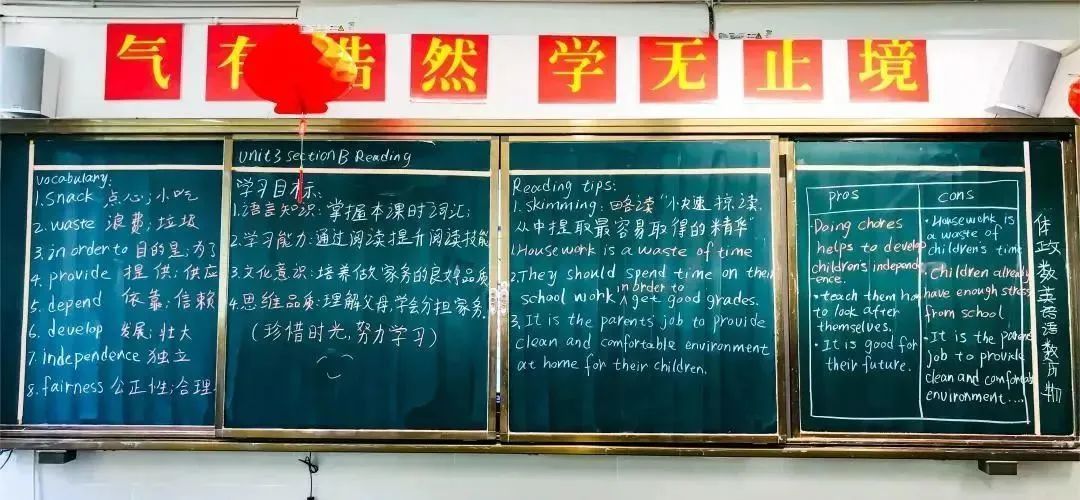 气有浩然 学无止境
vocabulary:
1. snack 点心;小吃
2. waste 浪费;垃圾
3. in order to 目的是;为了
4. provide 提供;供应
5. depend 依靠;信赖
6. develop 发展;壮大
7. independence 独立
8. fairness 公正性;合理
unit3 section B Reading
学习目标:
1.语言知识:掌握本课时词汇;
2.学习能力:通过阅读提升阅读技能
3.文化意识:培养做家务的良好品质
4.思维品质:理解父母,学会分担家务.
(珍惜时光,努力学习)
Reading tips:
1. skimming: 略读"小快速掠读,
从中提取最容易取得的精华"
1. Housework is a waste of time
2. They should spend time on their
school work in order to get good grades.
3. It is the parents' job to provide
clean and comfortable environment
at home for their children.
pros
• Doing chores
helps to develop
children's independ-
ence.
• teach them how
to look after
themselves.
• It is good for
their future.
cons
• Housework is
a waste of
children's time
• children already
have enough stress
from school
• It is the parents
job to provide
clean and comfortable
environment....
体政数英语数物